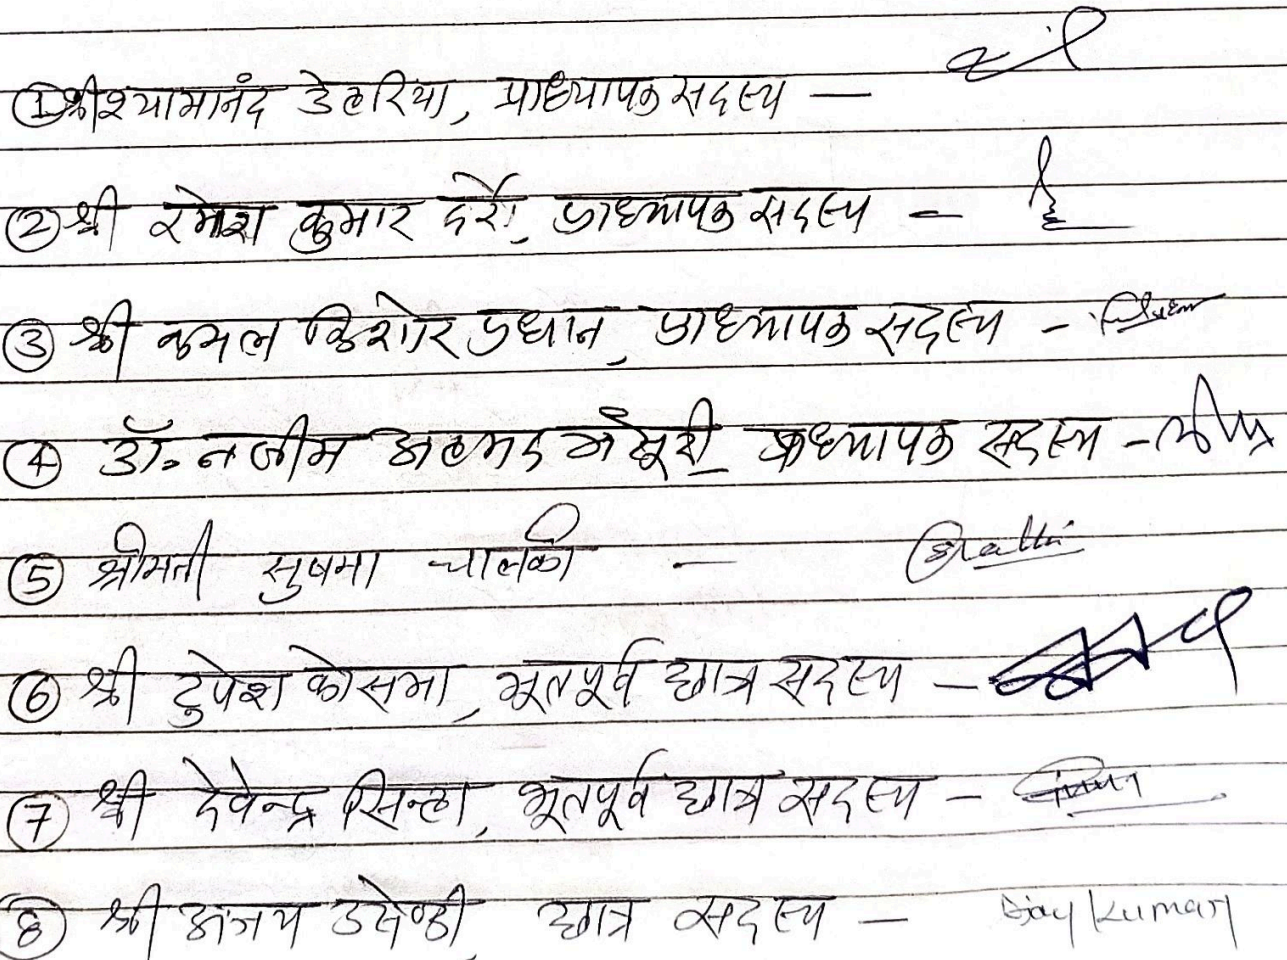 ① श्री श्यामानंद डेहरिया, प्राध्यापक सदस्य —
② श्री रमेश कुमार दर्रो, प्राध्यापक सदस्य —
③ श्री कमल किशोर प्रधान, प्राध्यापक सदस्य -
④ डॉ. नजीम अहमद मंसूरी, प्राध्यापक सदस्य -
⑤ श्रीमती सुषमा चालकी —
⑥ श्री टुपेश कोसमा, भूतपूर्व छात्र सदस्य -
⑦ श्री देवेन्द्र सिन्हा, भूतपूर्व छात्र सदस्य -
⑧ श्री अंजय उसेण्डी, छात्र सदस्य — Ajay Kumar